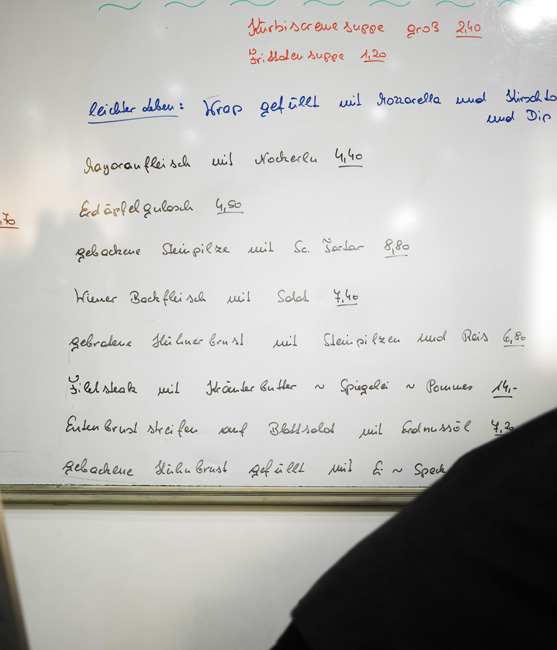 Kürbiscremesuppe groß 2,40
Frittatensuppe 1,20
leichter Leben: Wrap gefüllt mit Mozzarella und Kirschto
und Dip
Majoranfleisch mit Nockerln 4,40
Erdäpfelgulasch 4,50
,70
gebackene Steinpilze mit Sc. Tartar 8,80
Wiener Backfleisch mit Salat 7,40
gebratene Hühnerbrust mit Steinpilzen und Reis 6,80
Filetsteak mit Kräuterbutter ~ Spiegelei ~ Pommes 14,-
Entenbruststreifen auf Blattsalat mit Erdnussöl 7,2
gebackene Hühnbrust gefüllt mit Ei ~ Speck